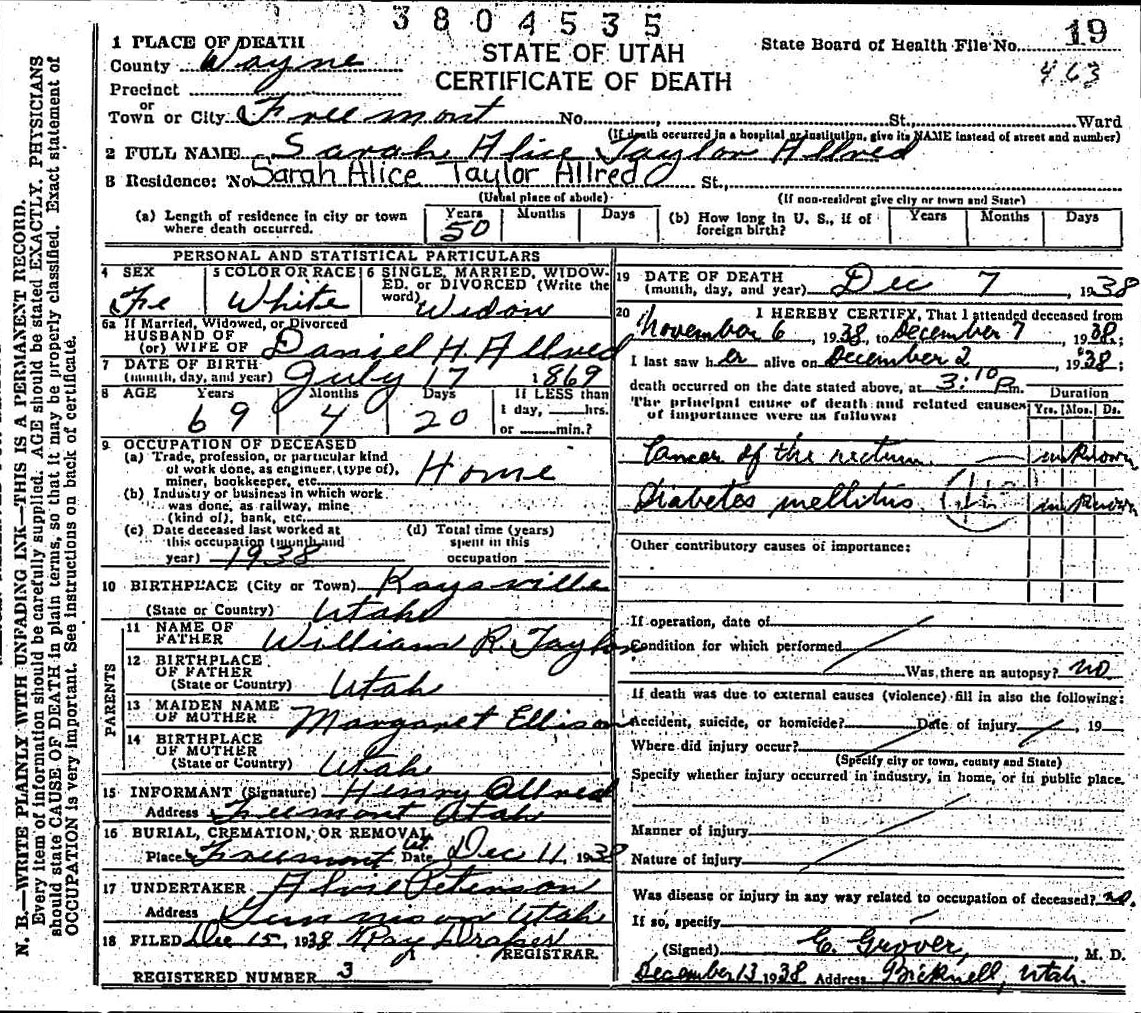 3804535
1 PLACE OF DEATH
County Wayne
Precinct
or
Town or City Freemont No. St. Ward
STATE OF UTAH
CERTIFICATE OF DEATH
State Board of Health File No. 19
463
(If death occurred in a hospital or institution, give its NAME instead of street and number)
2 FULL NAME Sarah Alice Taylor Allred
3 Residence: No. Sarah Alice Taylor Allred St.,
(Usual place of abode) (If non-resident give city or town and State)
(a) Length of residence in city or town where death occurred. Years 50 Months Days (b) How long in U. S., if of foreign birth? Years Months Days
PERSONAL AND STATISTICAL PARTICULARS
4 SEX Fe
5 COLOR OR RACE White
6 SINGLE, MARRIED, WIDOWED, or DIVORCED (Write the word) Widow
6a If Married, Widowed, or Divorced
HUSBAND OF
(or) WIFE OF Daniel H. Allred
7 DATE OF BIRTH
(month, day, and year) July 17 1869
8 AGE Years 69 Months 4 Days 20 If LESS than 1 day, hrs. or min.?
9 OCCUPATION OF DECEASED
(a) Trade, profession, or particular kind of work done, as engineer, (type of), miner, bookkeeper, etc. Home
(b) Industry or business in which work was done, as railway, mine (kind of), bank, etc.
(c) Date deceased last worked at this occupation (month and year) 1938
(d) Total time (years) spent in this occupation
10 BIRTHPLACE (City or Town) Kaysville
(State or Country) Utah
PARENTS
11 NAME OF FATHER William R. Taylor
12 BIRTHPLACE OF FATHER
(State or Country) Utah
13 MAIDEN NAME OF MOTHER Margaret Ellison
14 BIRTHPLACE OF MOTHER
(State or Country) Utah
15 INFORMANT (Signature) Henry Allred
Address Freemont Utah
16 BURIAL, CREMATION, OR REMOVAL
Place Freemont Ut. Date Dec 11, 1938
17 UNDERTAKER Peterson
Address Gunnison Utah
18 FILED Dec 15, 1938 Ray Draper
REGISTRAR.
REGISTERED NUMBER 3
19 DATE OF DEATH
(month, day, and year) Dec 7, 1938
20 I HEREBY CERTIFY, That I attended deceased from
November 6, 1938, to December 7, 1938;
I last saw her alive on December 2, 1938;
death occurred on the date stated above, at 3:10 Pm.
The principal cause of death and related causes of importance were as follows: Duration
Yrs. Mos. Ds.
Cancer of the rectum. unknown
Diabetes mellitus. unknown
Other contributory causes of importance:
If operation, date of
Condition for which performed
Was there an autopsy? no
If death was due to external causes (violence) fill in also the following:
Accident, suicide, or homicide? Date of injury , 19
Where did injury occur?
(Specify city or town, county and State)
Specify whether injury occurred in industry, in home, or in public place.
Manner of injury
Nature of injury
Was disease or injury in any way related to occupation of deceased? no.
If so, specify
(Signed) E. Grover, M. D.
December 13 1938 Address Bicknell, Utah.
N. B.—WRITE PLAINLY WITH UNFADING INK—THIS IS A PERMANENT RECORD.
Every item of information should be carefully supplied. AGE should be stated EXACTLY. PHYSICIANS
should state CAUSE OF DEATH in plain terms, so that it may be properly classified. Exact statement of
OCCUPATION is very important. See instructions on back of certificate.